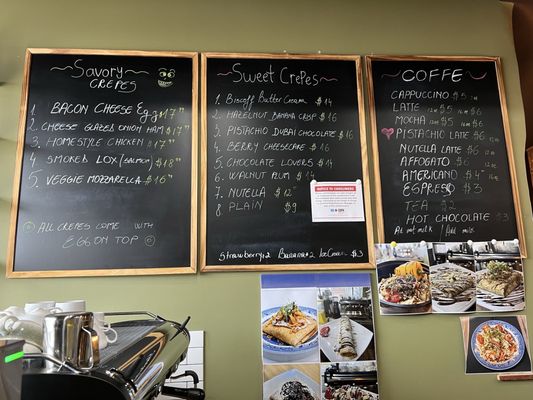 Savory
CREPES
1. BACON CHEESE Egg $17
2. CHEESE GLAZED ONION HAM $17
3. HOMESTYLE CHICKEN $17
4 SMOKED LOX/(SALMON) $18
5. VEGGIE MOZZARELLA $16
ALL CREPES COME WITH
EGG ON TOP
Sweet CREPES
1. Biscoff Butter Cream $14
2. HAZELNUT BANANA CRISP $16
3 PISTACHIO DUBAI CHOCOLATE $16
4. BERRY CHEESECAKE $14
5. CHOCOLATE LOVERS $14
6. WALNUT RUM $14
7. NUTELLA $12
8 PLAIN $9
NOTICE TO CONSUMERS
Strawberry $2 Banana $2 ICE CREAM $3
COFFE
CAPPUCCINO $5
LATTE 12oz $5 16oz $6
MOCHA 12oz $5 16oz $6
PISTACHIO LATTE $6
NUTELLA LATTE $6
AFFOGATO $6
AMERICANO $4
ESPRESSO $3
TEA $2
HOT CHOCOLATE $3
oat milk / Add milk